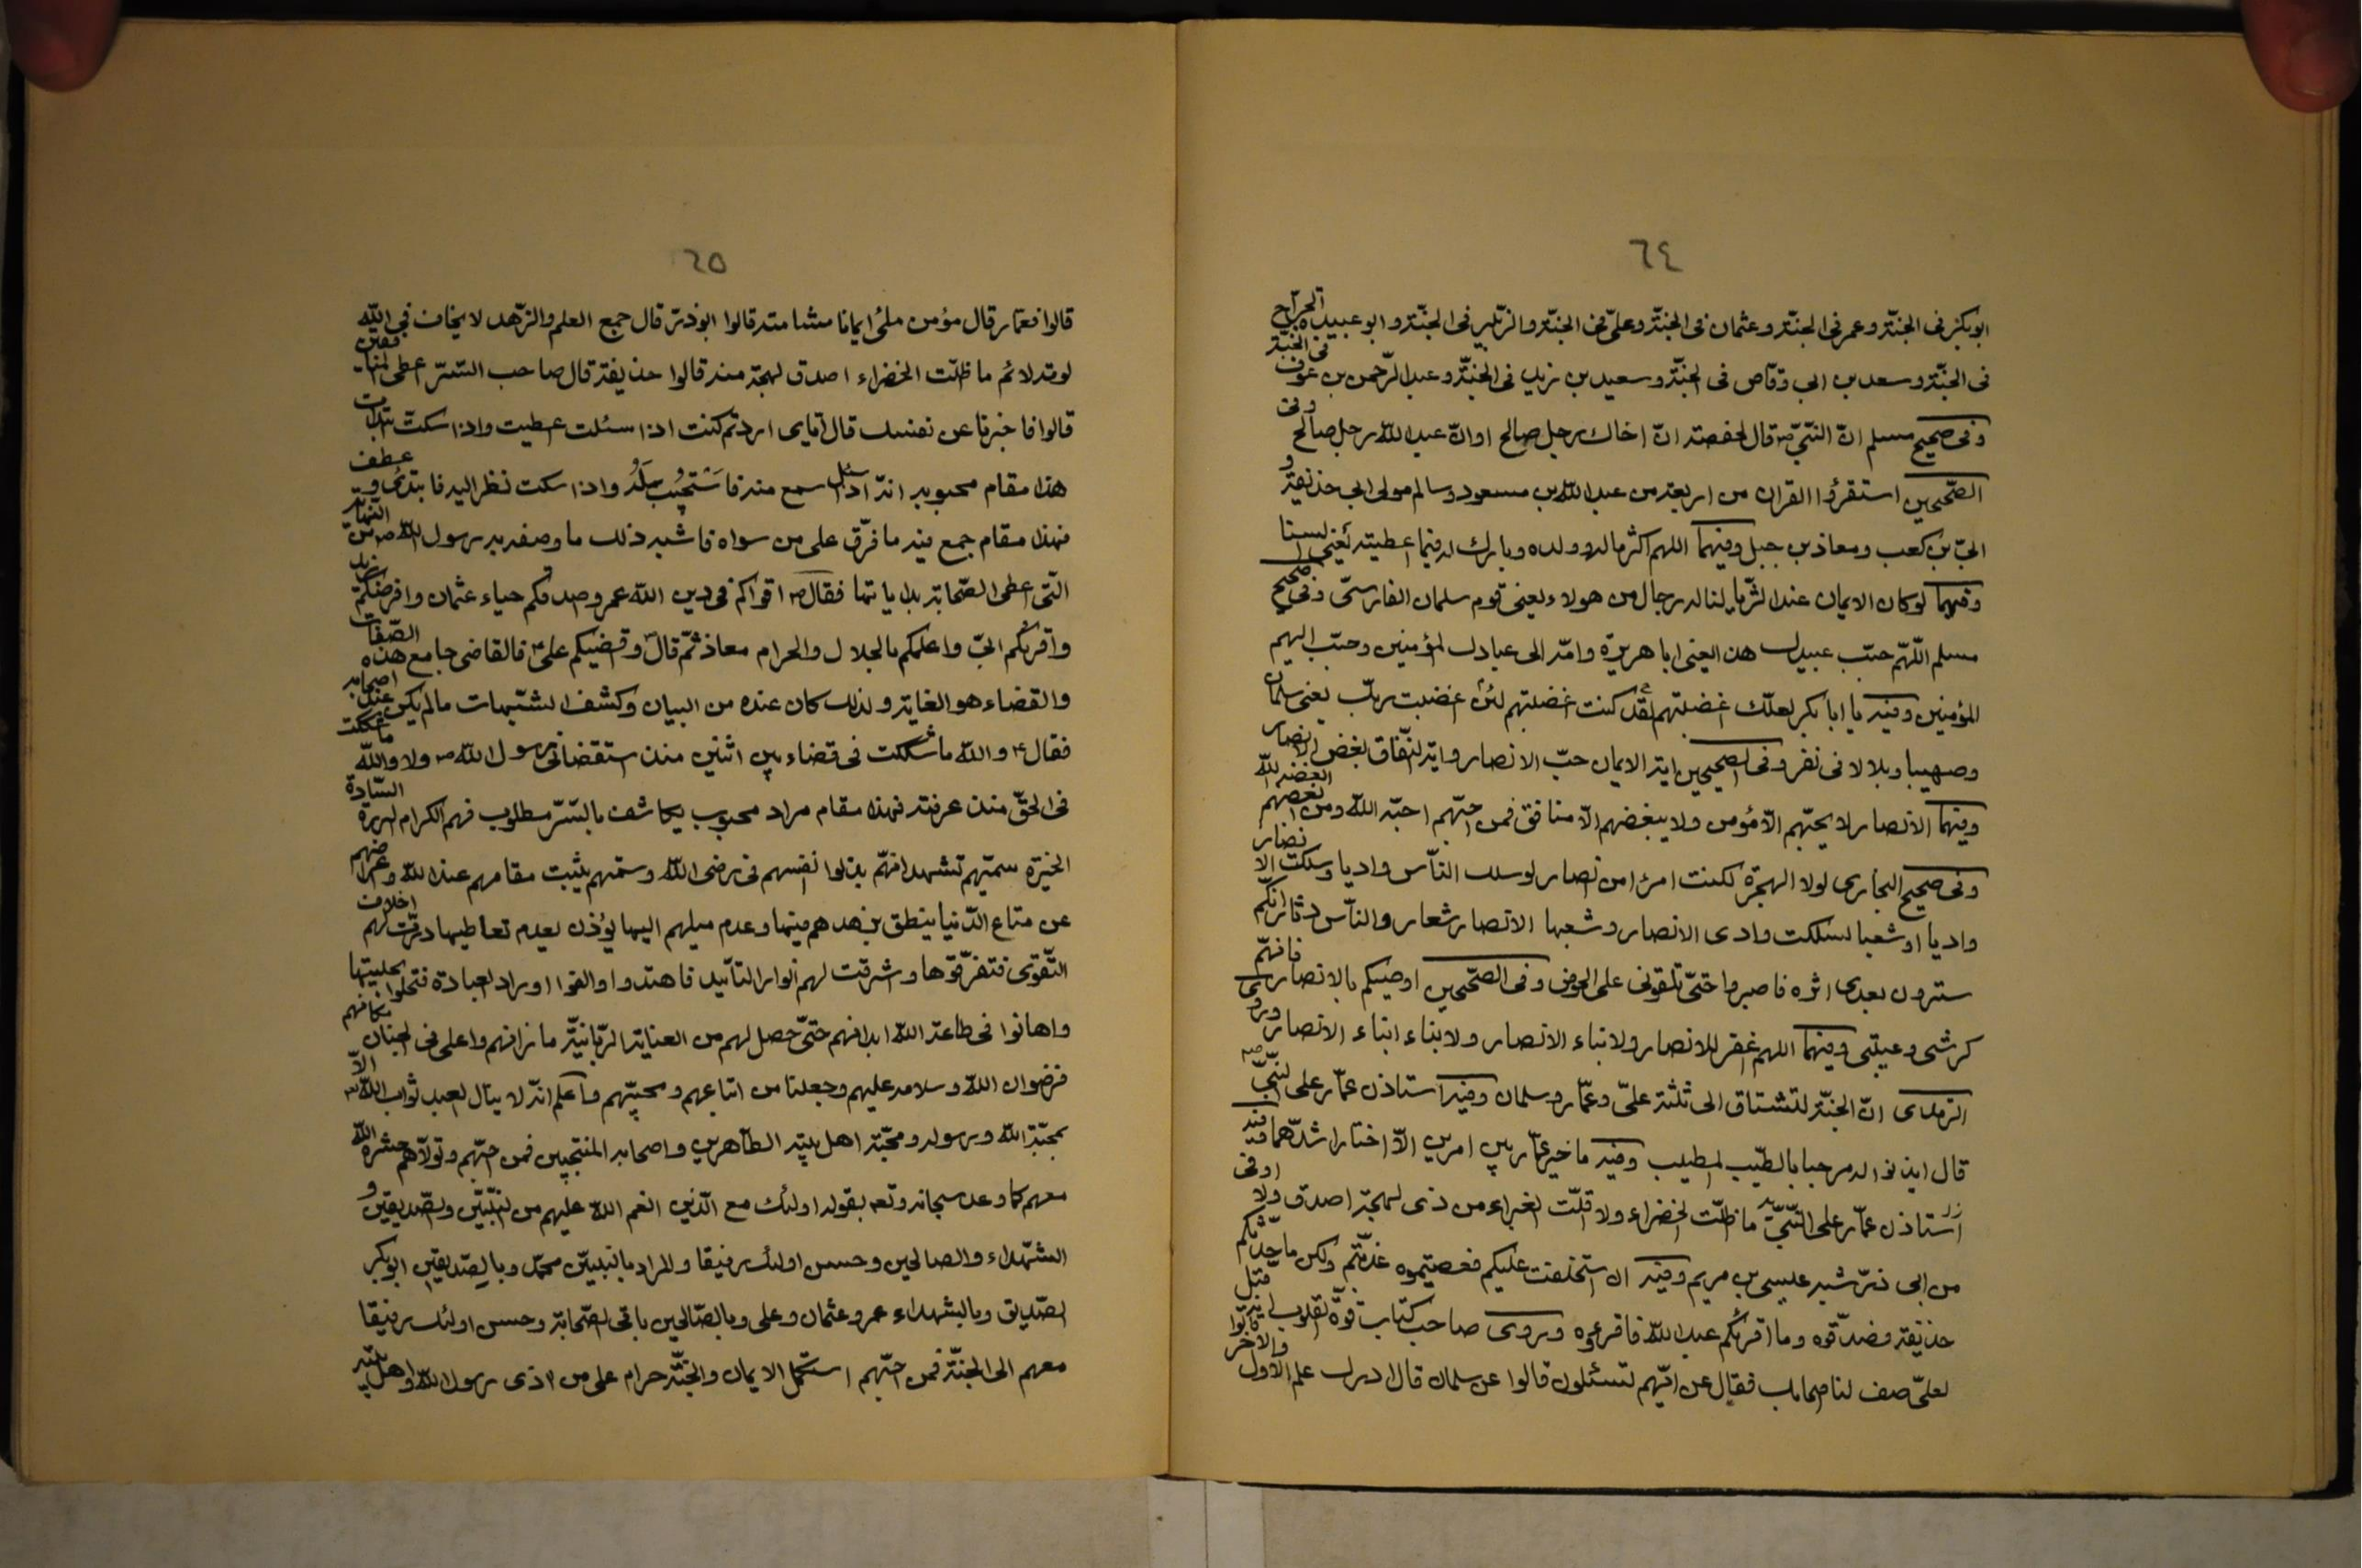 ٦٤
ابوبكر فى الجنّة وعمر فى الجنّة وعثمان فى الجنّة وعلىّ فى الجنّة والزّبير فى الجنّة وابو عبيدة الجرّاح فى الجنّة
فى الجنّة وسعد بن ابى وقّاص فى الجنّة وسعيد بن زيد فى الجنّة وعبد الرّحمن بن عوف
وفى صحيح مسلم انّ النّبىّ ص قال لحفصة انّ اخاك رجل صالح او انّ عبد الله رجل صالح وفى
الصّحيحين استقرؤا القران من اربعة من عبد الله بن مسعود وسالم مولى ابى حذيفة و
ابىّ بن كعب ومعاذ بن جبل وفيهما اللهم اكثر ماله وولده وبارك له فيما اعطيته يعنى
وفيهما لو كان الايمان عند الثّريا لناله رجال من هولاء يعنى قوم سلمان الفارسىّ وفى صحيح
مسلم اللّهمّ حبّب عبيدك هذا يعنى ابا هريرة وامّه الى عبادك المؤمنين وحبّب اليهم
المؤمنين وفيه يا ابا بكر لعلّك اغضبتهم لئن كنت اغضبتهم لقد اغضبت ربّك يعنى سلمان
وصهيبا وبلالا فى نفر وفى الصحيحين اية الايمان حبّ الانصار واية النّفاق بغض الانصار
وفيهما الانصار لا يحبّهم الّا مؤمن ولا يبغضهم الّا منافق فمن احبّهم احبّه الله ومن ابغضهم ابغضه الله
وفى صحيح البخارى لولا الهجرة لكنت امرءا من الانصار لو سلك النّاس واديا وسلكت الانصار
واديا او شعبا لسلكت وادى الانصار وشعبها الانصار شعار والنّاس دثار انّكم
سترون بعدى اثرة فاصبروا حتّى تلقونى على الحوض وفى الصّحيحين اوصيكم بالانصار فانهم
كرشى وعيبتى وفيهما اللهم اغفر للانصار ولابناء الانصار ولابناء ابناء الانصار وروى
الترمذى انّ الجنّة لتشتاق الى ثلثة علىّ وعمّار وسلمان وفيه استاذن عمّار على النّبىّ ص
قال ايذنوا له مرحبا بالطيّب المطيّب وفيه ما خيّر عمّار بين امرين الّا اختار اشدّهما وفيه
استاذن عمّار على النّبىّ ما ظلّت الخضراء ولا اقلّت الغبراء من ذى لهجة اصدق ولا اوفى
من ابى ذرّ شبه عيسى بن مريم وفيه ان استخلفت عليكم فعصيتموه عذّبتم ولكن ما حدّثكم
حذيفة فصدّقوه وما اقراكم عبد الله فاقرءوه وروى صاحب كتاب قوّة القلوب
لعلىّ صف لنا اصحابك فقال عن ايّهم تسئلون قالوا عن سلمان قال ادرك علم الاوّل والاخر
٦٥
قالوا فعمّار قال مؤمن ملئ ايمانا مشاشته قالوا ابوذر قال جمع العلم والزّهد لا يخاف فى الله
لومة لائم ما ظلّت الخضراء اصدق لهجة منه قالوا حذيفة قال صاحب السّرّ اعطى
قالوا فاخبرنا عن نفسك قال ايّاى اردتم كنت اذا سئلت عطيت واذا سكتّ ابتدات
هذا مقام محبوبه انّه اذا سئل سمع منه فاستجيب له واذا سكت نظر اليه فابتدى وعطف
فهذا مقام جمع فيه ما فرّق على من سواه فاشبه ذلك ما وصف به رسول الله ص من
الّتى اعطى الصّحابة بداياتها فقال ص اقواكم فى دين الله عمر وصدقكم حياء عثمان وافرضكم زيد
واقرئكم ابىّ واعلمكم بالحلال والحرام معاذ ثمّ قال وقضيكم على فالقاضى جامع هذه الصّفات
والقضاء هو الغاية ولذلك كان عنده من البيان وكشف الشّبهات ما لم يكن عند اصحابه
فقال والله ما شككت فى قضاء بين اثنين منذ استقضانى رسول الله ص ولا والله ما شككت
فى الحقّ منذ عرفته فهذا مقام مراد محبوب يكاشف بالسّرّ مطلوب فهم الكرام البررة السّادة
الخيرة سمتهم تشهد انّهم بذلوا انفسهم فى رضى الله وسمتهم يثبت مقامهم عند الله
عن متاع الدّنيا ينطق بزهدهم فيها وعدم ميلهم اليها يؤذن بعدم تعاطيها درّت لهم اخلاف
التّقوى فتفرّقوها وشرقت لهم انوار التأييد فاهتدوا والفوا اوراد العبادة فتحلوا بحليتها
واهانوا فى طاعة الله ابدانهم حتّى حصل لهم من العناية الرّبانيّة ما زانهم واعلى فى الجنان مكانهم
فرضوان الله وسلامه عليهم وجعلنا من اتباعهم ومحبّيهم واعلم انّه لا ينال العبد ثواب الله الّا
بمحبّة الله ورسوله ومحبّة اهل بيته الطّاهرين واصحابه المنتجبين فمن احبّهم وتولّاهم حشره الله
معهم كما وعد سبحانه وتعه بقوله اولئك مع الّذين انعم الله عليهم من النّبيّين والصّديقين و
الشّهداء والصالحين وحسن اولئك رفيقا والمراد بالنبيين محمّد وبالصّديقين ابوبكر
الصّديق وبالشهداء عمر وعثمان وعلى وبالصّالحين باقى الصّحابة وحسن اولئك رفيقا
معهم الى الجنّة فمن احبّهم استكمل الايمان والجنّة حرام على من اذى رسول الله واهل بيته